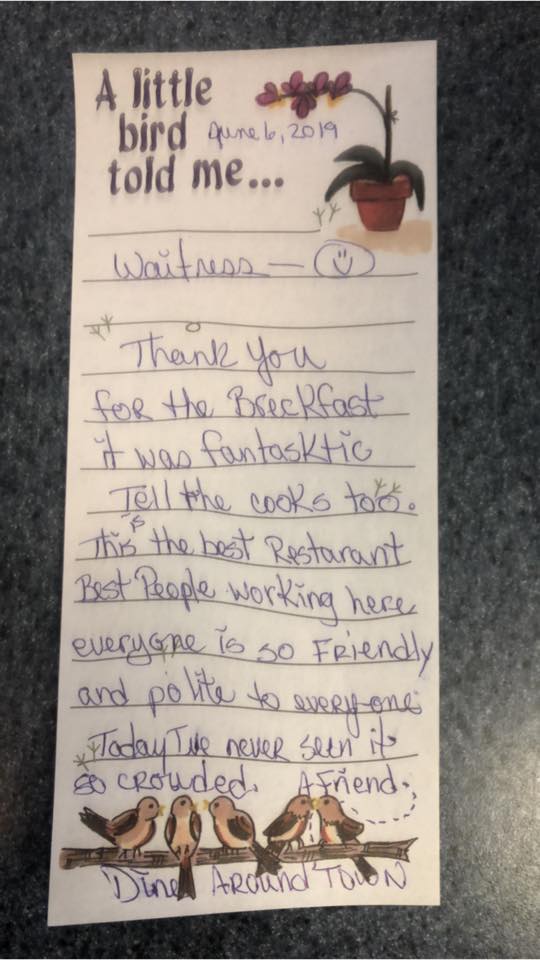 A little
bird June 6, 2019
told me...
Waitress — ☺
Thank You
for the Breckfast
it was fantasktic
Tell the cooks too.
This is the best Restarant
Best People working here
everyone is so Friendly
and polite to everyone.
Today I've never seen it
so crowded. A friend.
Dine Around Town